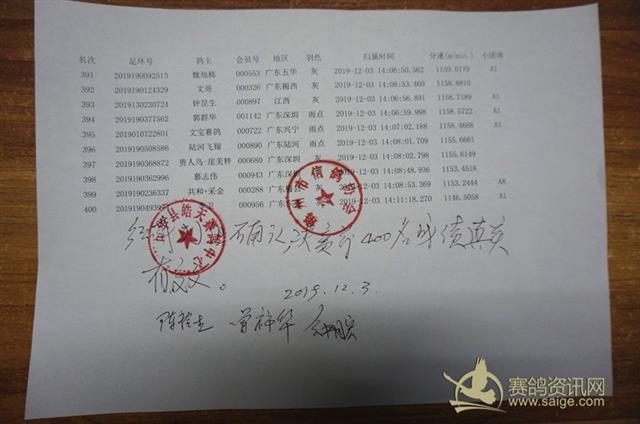 名次 足环号 鸽主 会员号 地区 羽色 归巢时间 分速(m/min.) 小团体
391 2019190092513 魏旭栋 000553 广东五华 灰 2019-12-03 14:06:50.562 1159.0179 A1
392 2019190124329 文哥 000326 广东揭西 灰 2019-12-03 14:06:53.560 1158.8810
393 2019130230724 钟昆生 000897 江西 灰 2019-12-03 14:06:56.891 1158.7189 A1
394 2019190377562 郭群华 001142 广东深圳 雨点 2019-12-03 14:06:59.998 1158.5722 A1
395 2019010722801 文宝赛鸽 000722 广东兴宁 雨点 2019-12-03 14:07:02.188 1158.4688 A1
396 2019190508586 陆河飞翔 000890 广东陆河 雨点 2019-12-03 14:08:01.709 1155.6661
397 2019190368872 贵人鸟-崖美粹 000680 广东深圳 灰 2019-12-03 14:08:02.798 1155.6149
398 2019190362996 慕志伟 000943 广东深圳 2019-12-03 14:08:48.998 1153.4518
399 2019190236337 共和+采金 000288 2019-12-03 14:08:53.369 1153.2444 A8
400 000956 2019-12-03 14:11:18.270 1146.5058 A1
确认决赛前400名成绩真实
有效。
2019.12.3.
赛鸽资讯网
www.saige.com